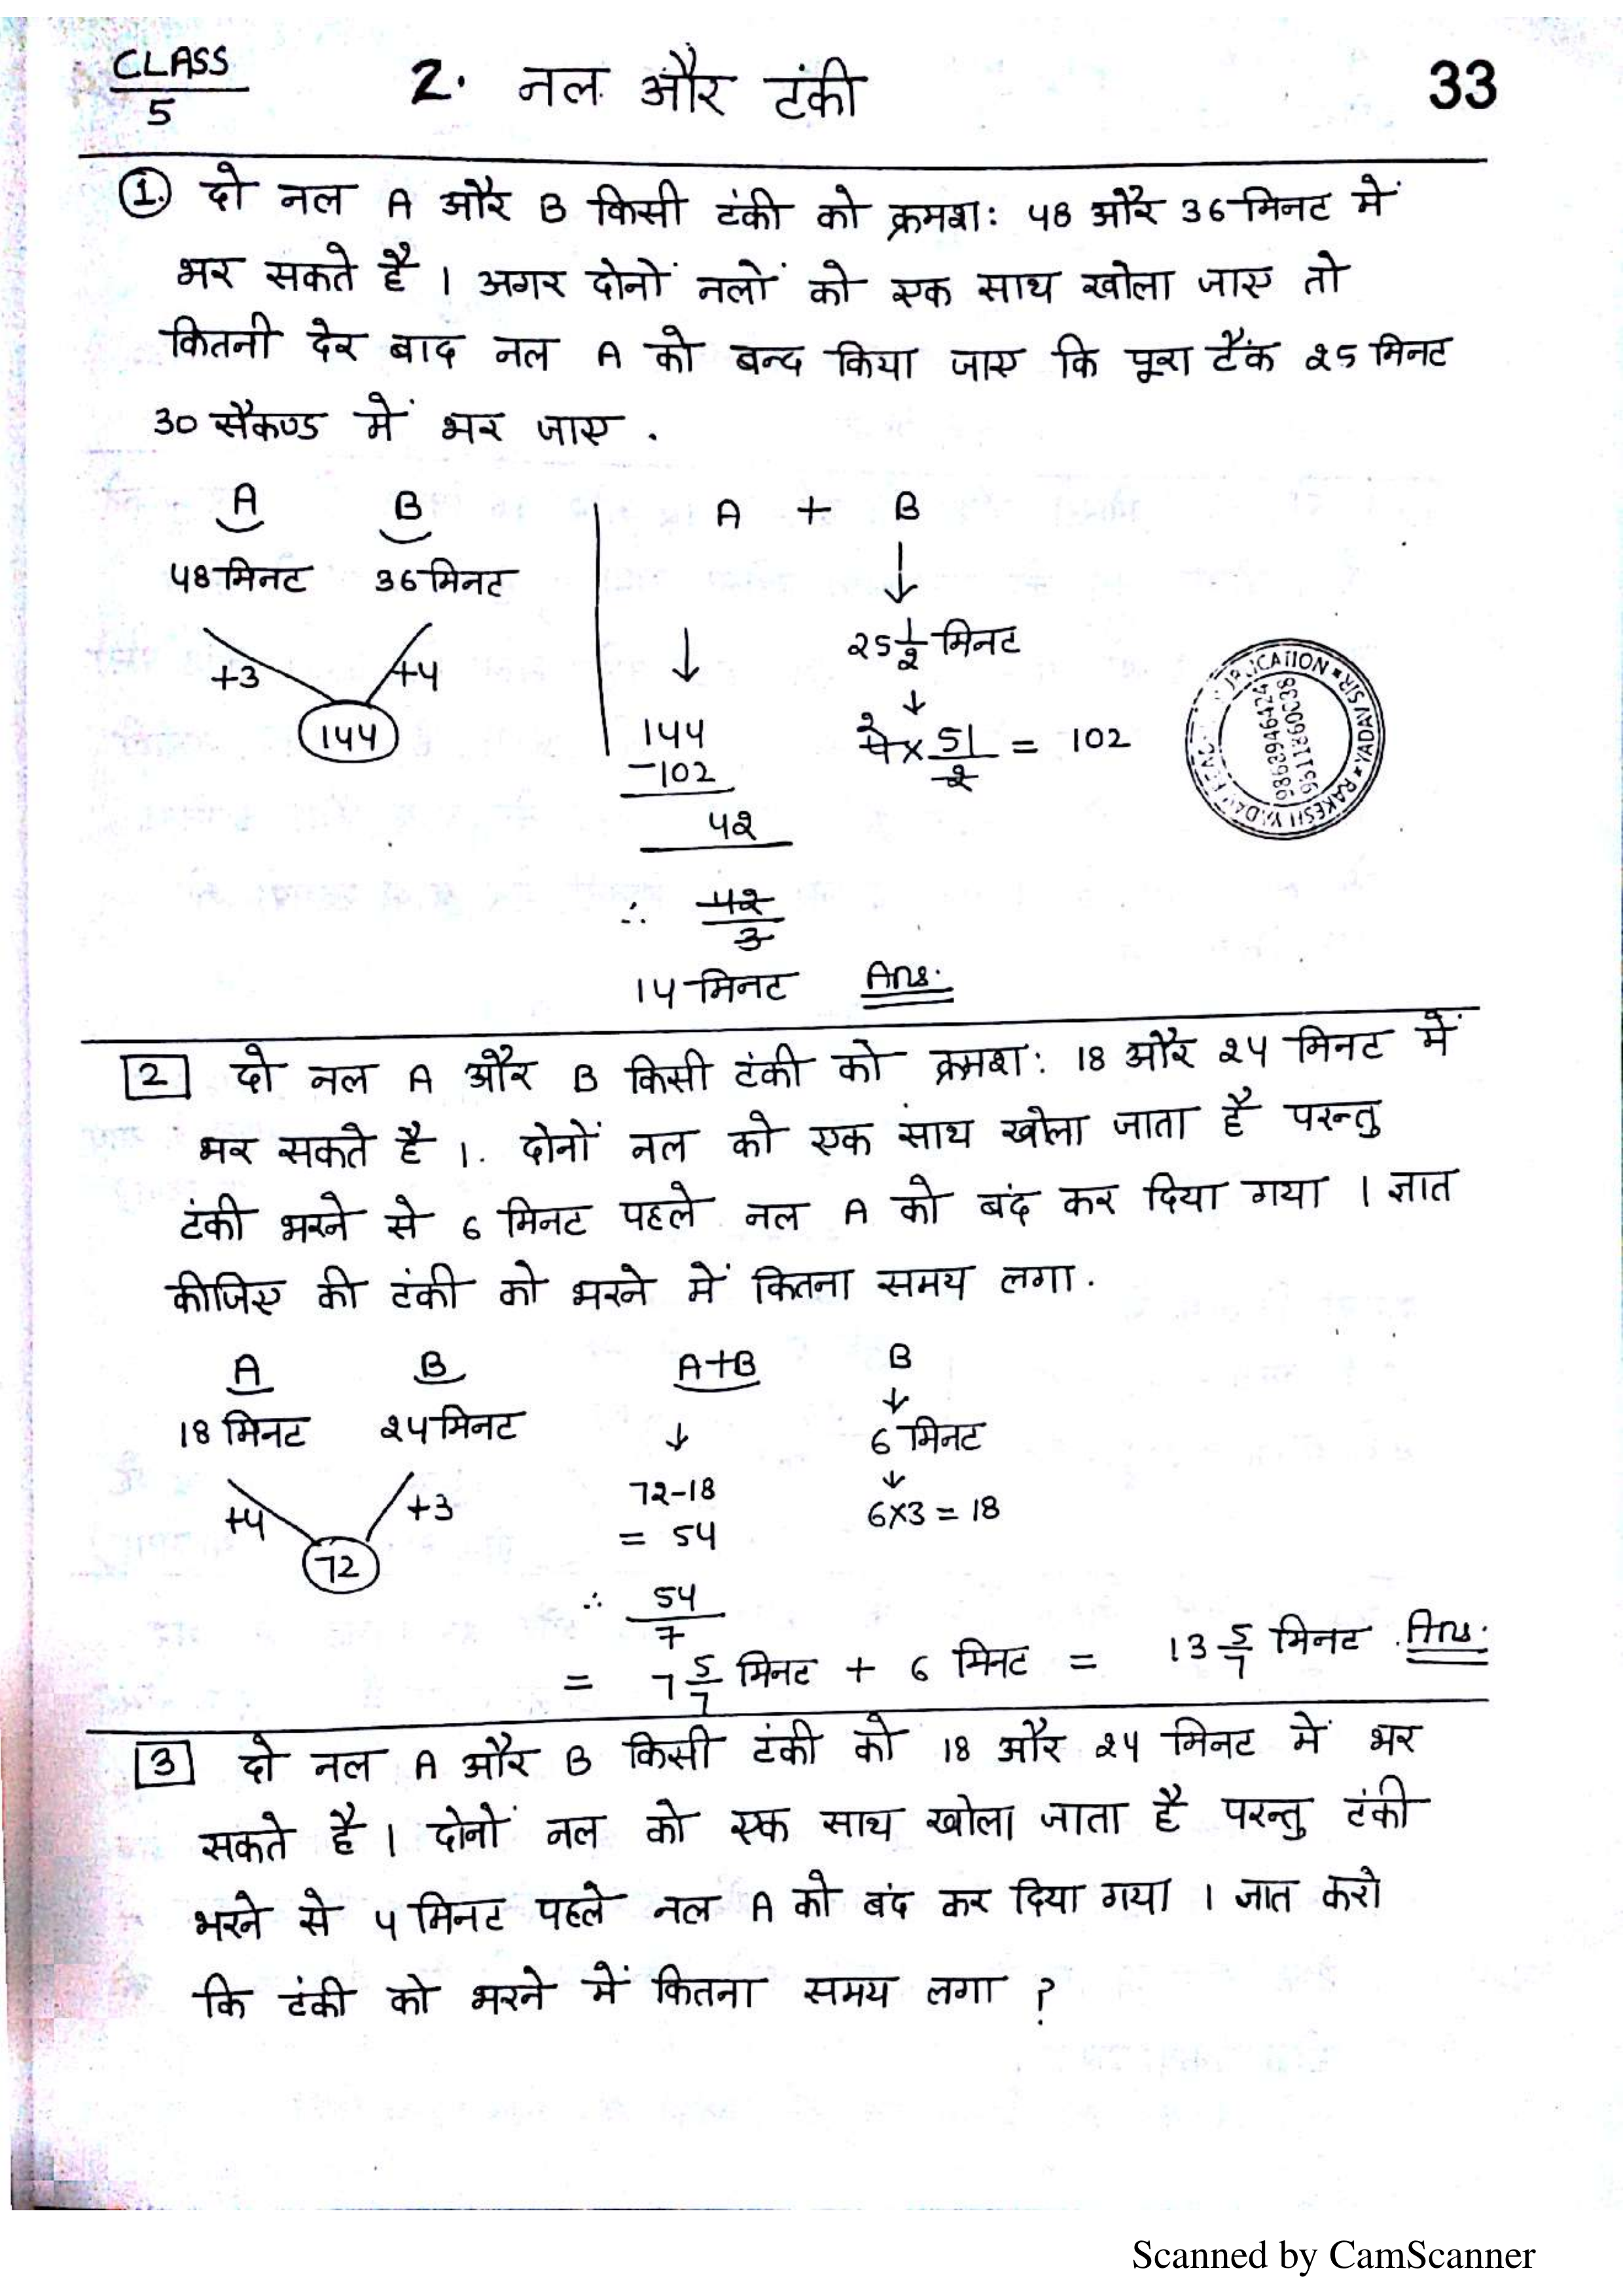 CLASS 5
2. नल और टंकी
33
1. दो नल A और B किसी टंकी को क्रमश: 48 और 36 मिनट में
भर सकते है । अगर दोनों नलों को एक साथ खोला जाए तो
कितनी देर बाद नल A को बन्द किया जाए कि पूरा टैंक 25 मिनट
30 सैकण्ड में भर जाए .
A B A + B
48 मिनट 36 मिनट
25 1/2 मिनट
+3 +4
144
144
4 2 × 51/2 = 102
-102
42
∴ 42/3
14 मिनट Ans.
PUBLICATION * RAKESH YADAV * YADAV SIR
9862946424
9511860038
2 दो नल A और B किसी टंकी को क्रमश: 18 और 24 मिनट में
भर सकते है ।. दोनों नल को एक साथ खोला जाता है परन्तु
टंकी भरने से 6 मिनट पहले नल A को बंद कर दिया गया । ज्ञात
कीजिए की टंकी को भरने में कितना समय लगा .
A B A+B B
18 मिनट 24 मिनट 6 मिनट
+4 +3 72-18 6×3 = 18
= 54
72
∴ 54/7
= 7 5/7 मिनट + 6 मिनट = 13 5/7 मिनट . Ans.
3 दो नल A और B किसी टंकी को 18 और 24 मिनट में भर
सकते है । दोनों नल को एक साथ खोला जाता है परन्तु टंकी
भरने से 4 मिनट पहले नल A को बंद कर दिया गया । जात करो
कि टंकी को भरने में कितना समय लगा ?
Scanned by CamScanner